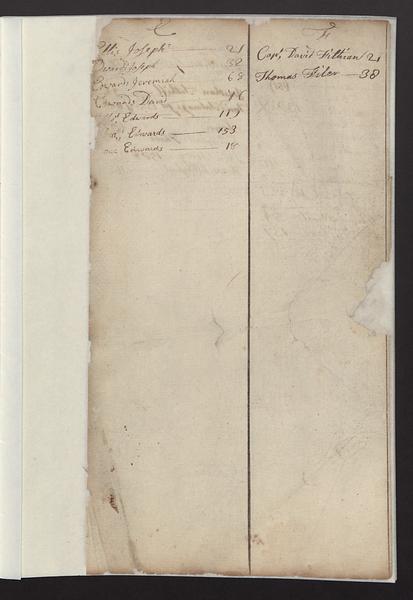 E
Ellis Joseph 21
Edwards Joseph 38
Edwards Jeremiah 68
Edwards David
Edwards 119
Edwards 153
Edwards 18
F
Capt David Fithian 21
Thomas Filer 38